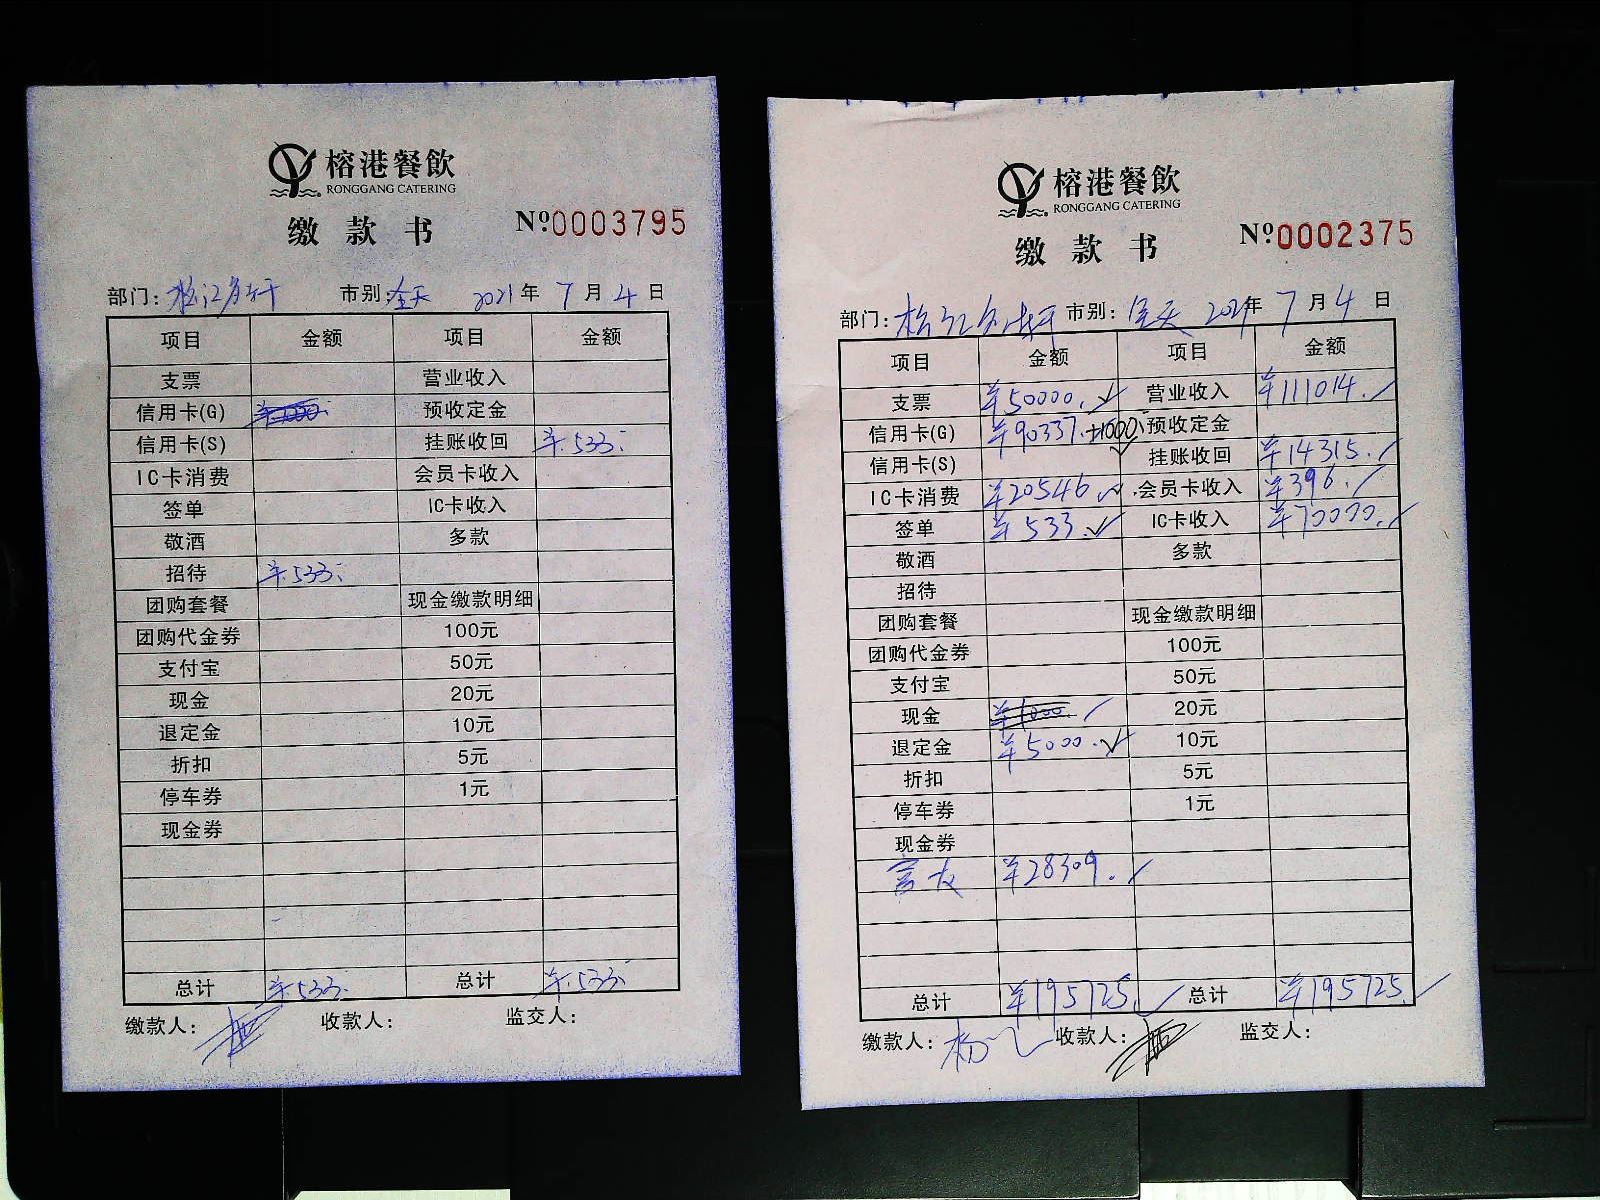 榕港餐飲
RONGGANG CATERING
缴款书 №0003795
部门: 市别:全天 2021年7月4日
项目 金额 项目 金额
支票 营业收入
信用卡(G) 预收定金
信用卡(S) 挂账收回 ¥533.
IC卡消费 会员卡收入
签单 IC卡收入
敬酒 多款
招待 ¥533.
团购套餐 现金缴款明细
团购代金券 100元
支付宝 50元
现金 20元
退定金 10元
折扣 5元
停车券 1元
现金券
总计 ¥533. 总计 ¥533.
缴款人: 收款人: 监交人:
榕港餐飲
RONGGANG CATERING
缴款书 №0002375
部门: 市别:全天 2021年7月4日
项目 金额 项目 金额
支票 ¥50000. 营业收入 ¥111014.
信用卡(G) ¥90337.+1000 预收定金
信用卡(S) 挂账收回 ¥14315.
IC卡消费 ¥20546 会员卡收入 ¥396.
签单 ¥533. IC卡收入 ¥70000.
敬酒 多款
招待
团购套餐 现金缴款明细
团购代金券 100元
支付宝 50元
现金 ¥1000. 20元
退定金 ¥5000. 10元
折扣 5元
停车券 1元
现金券
富友 ¥28309.
总计 ¥195725. 总计 ¥195725.
缴款人: 收款人: 监交人: